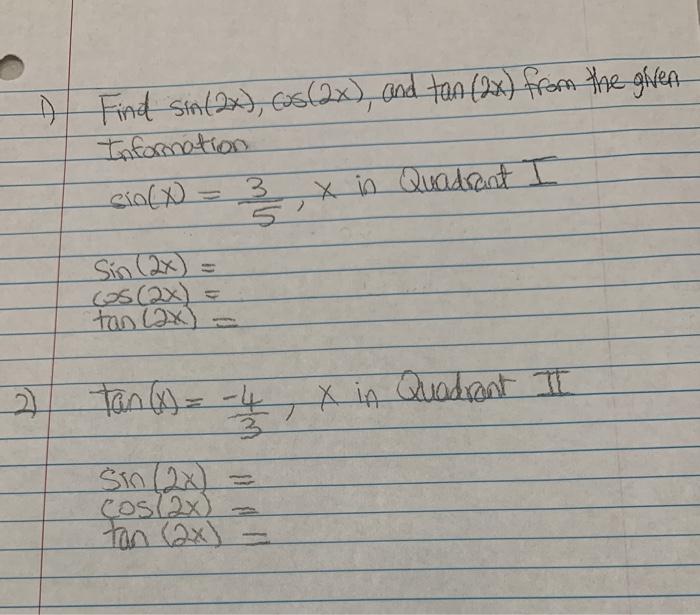 1) Find sin(2x), cos(2x), and tan(2x) from the given
Information
sin(x) = 3/5, x in Quadrant I
sin(2x) =
cos(2x) =
tan(2x) =
2) tan(x) = -4/3, x in Quadrant II
sin(2x) =
cos(2x) =
tan(2x) =